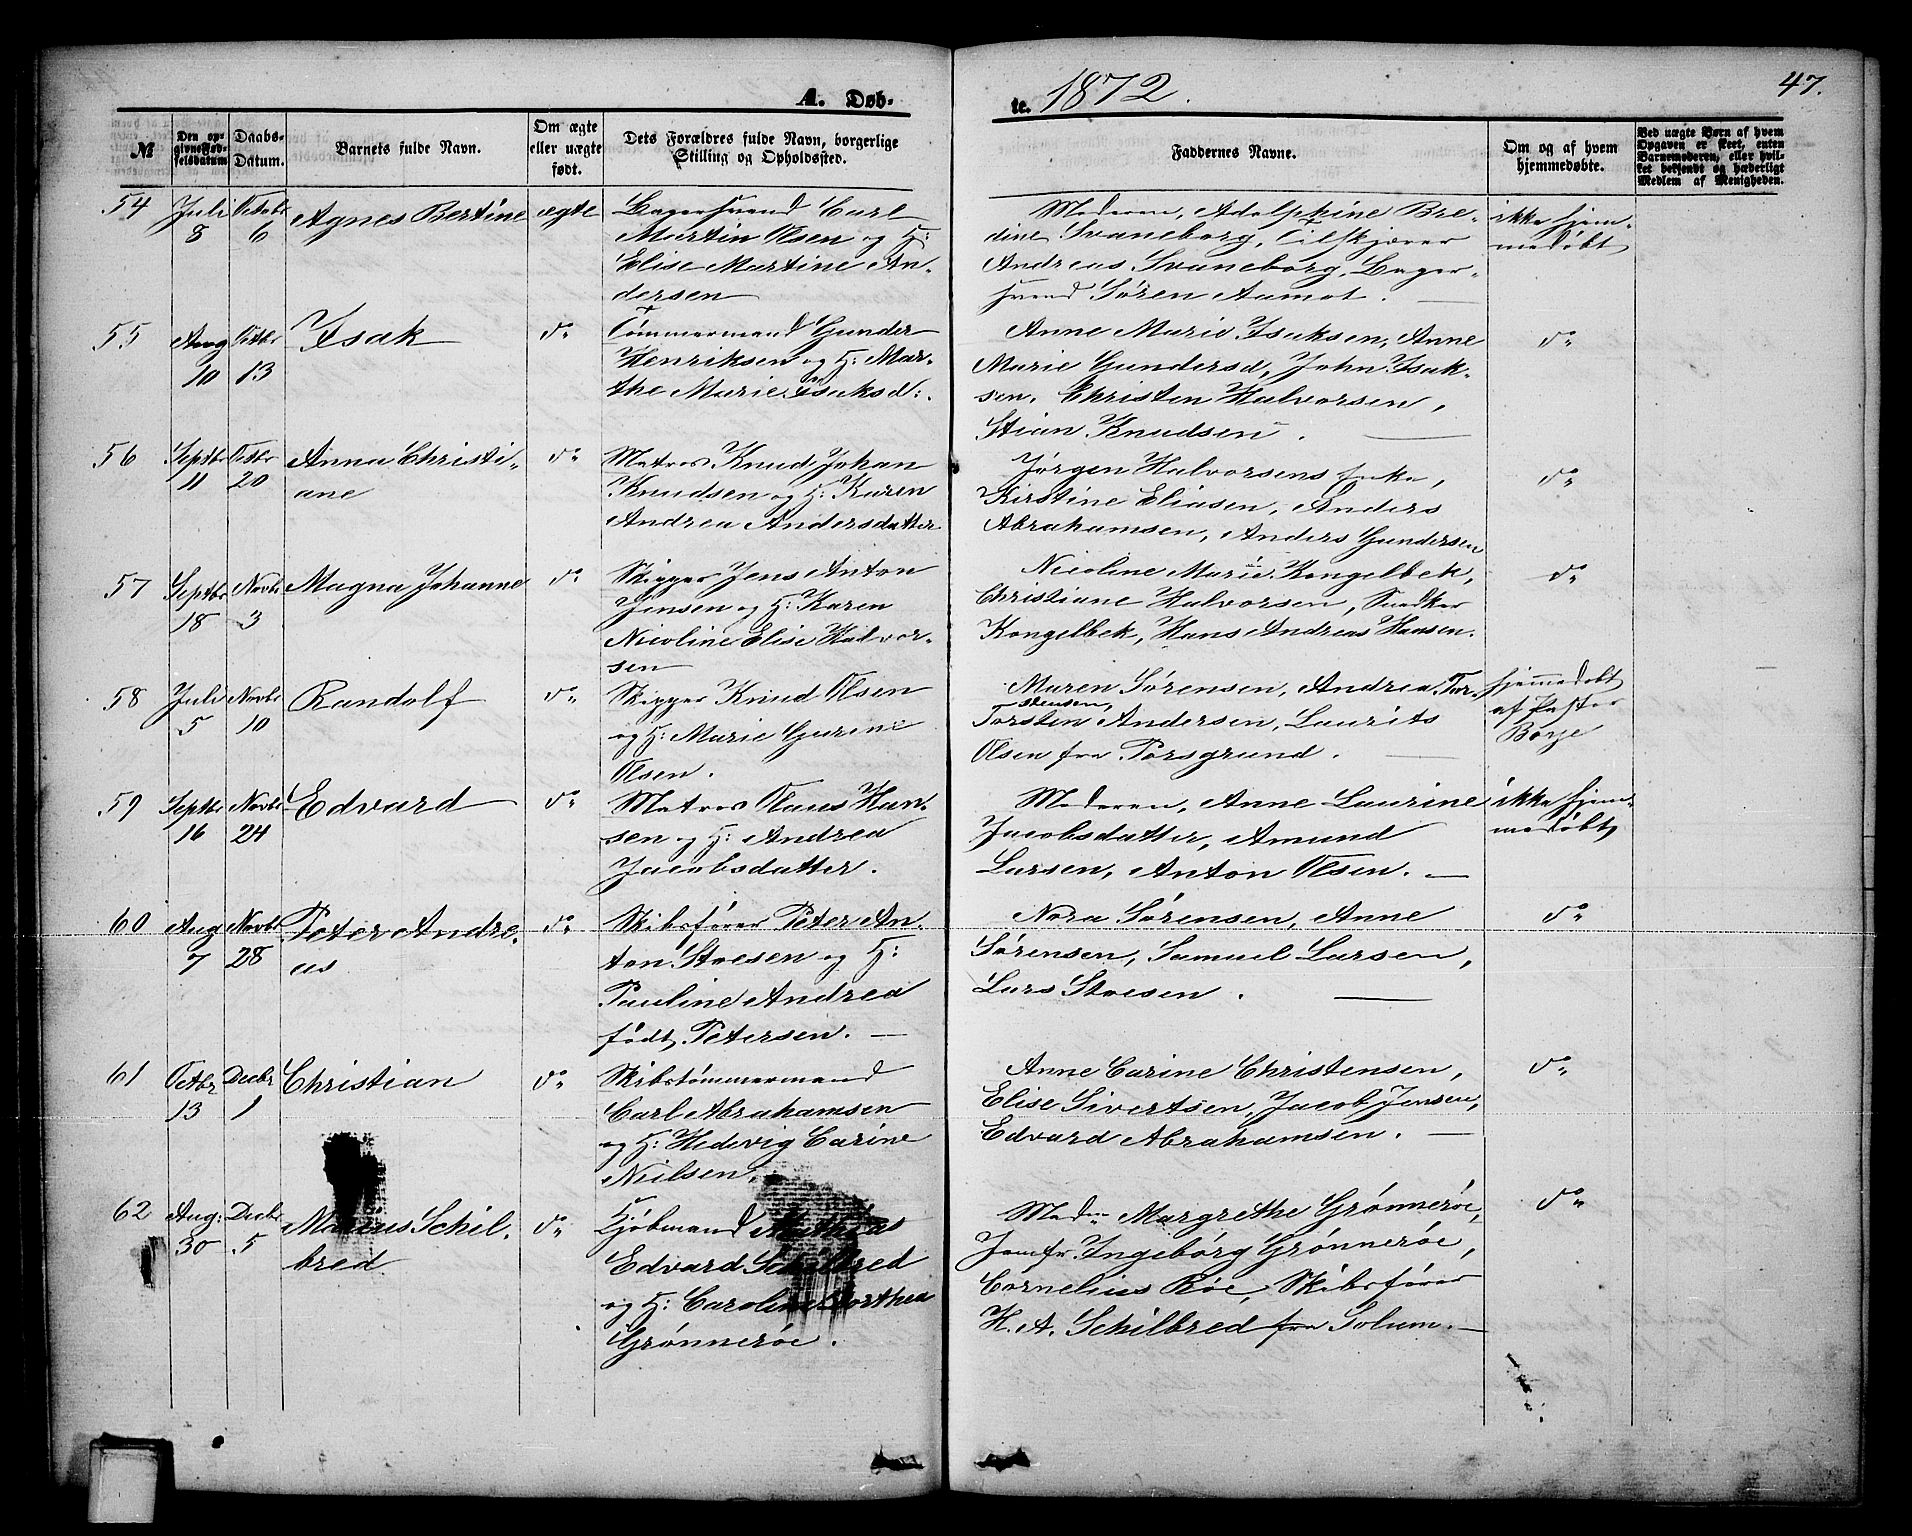 A. Døb-
te. 1872.
47.
№
Den opgivne Fødselsdatum
Daabs-Datum.
Barnets fulde Navn.
Om ægte eller uægte født.
Dets Forældres fulde Navn, borgerlige Stilling og Opholdssted.
Faddernes Navne.
Om og af hvem hjemmedøbte.
Ved uægte Børn af hvem Opgaven er skeet, enten Barnemoderen, eller hvilket betroedt og hæderligt Medlem af Menigheden.
54 Juli 8 Octobr 6 Agnes Bertine ægte
Lagersvend Carl
Martin Olsen og H:
Elise Martine An-
dersen
Moderen, Adolphine Bre-
dine Svaneborg, Tilskjærer
Andreas Svaneborg, Lager-
svend Søren Aamot. —
ikke hjem-
medøbt
55 Aug 10 Octbr 13 Isak do
Tømmermand Gunder
Henriksen og H: Mar-
the Marie Isaksd:.
Anne Marie Isaksen, Anne
Marie Gundersd, John Isak-
sen, Christen Halvorsen,
Stian Knudsen. —
do
56 Septbr 11 Octbr 20 Anna Christi-
ane do
Matros Knud Johan
Knudsen og H: Karen
Andrea Andersdatter
Jørgen Halvorsens enke,
Kirstine Eliasen, Anders
Abrahamsen, Anders Gundersen
do
57 Septbr 18 Novbr 3 Magna Johanne do
Skipper Jens Anton
Jensen og H: Karen
Nicoline Elise Halvor-
sen
Nicoline Marie Kongelbek,
Christiane Halvorsen, Snedker
Kongelbek, Hans Andreas Hansen.
do
58 Juli 5 Novbr 10 Randolf do
Skipper Knud Olsen
og H: Marie Gurine
Olsen.
Maren Sørensen, Andrea Tor-
stensen,
Torsten Andersen, Laurits
Olsen fra Porsgrund. —
hjemmedøbt
af Pastor
Børje
59 Septbr 16 Novbr 24 Edvard do
Matros Olaus Han-
sen og H: Andrea
Jacobsdatter.
Moderen, Anne Laurine
Jacobsdatter, Amund
Larsen, Anton Olsen. —
ikke hjem-
medøbt
60 Aug 7 Novbr 28 Peter Andre-
as do
Skibsfører Peter An-
ton Stoesen og H:
Pauline Andrea
født Petersen. —
Nora Sørensen, Anne
Sørensen, Samuel Larsen,
Lars Stoesen. —
do
61 Octbr 13 Decbr 1 Christian do
Skibstømmermand
Carl Abrahamsen
og H: Hedevig Carine
Nielsen.
Anne Carine Christensen,
Elise Sivertsen, Jacob Jensen,
Edvard Abrahamsen. —
do
62 Aug: 30 Decbr 5 Marius Schil-
bred do
Kjøbmand Mathias
Edvard Schilbred
og H: Caroline Dorthea
Grønnerøe.
Mad. Margrethe Grønnerøe,
Jomfr Ingeborg Grønnerøe,
Cornelius Røe, Skibsfører
H. A. Schilbred fra Solum. —
do